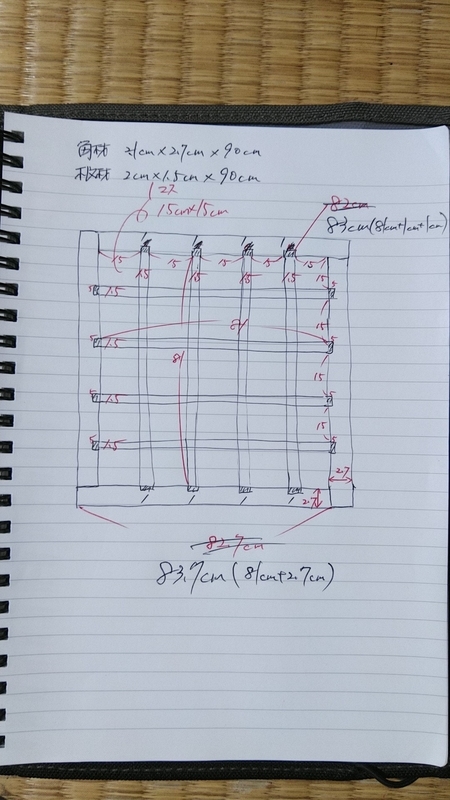 角材 3.1cm×2.7cm×90cm
板材 2cm×1.5cm×90cm
127
15cm×15cm
82cm
83cm(81cm+1cm+1cm)
15 15 15 15 15
1.5 1.5 1.5 1.5 15
5 1.5 5
15
81
5 1.5 5
81
15
5 1.5 5
15
5 1.5 5
2.7
2.7
1 1 1 1
82.7cm
83.7cm(81cm+2.7cm)